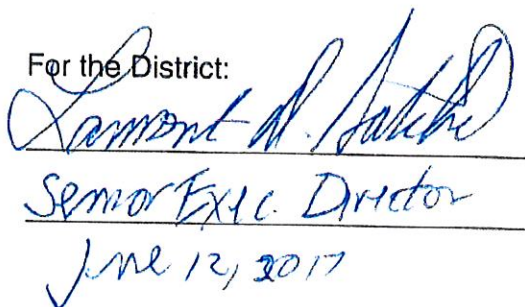 For the District:
Lamont D. Satchel
Senior Exec. Director
June 12, 2017